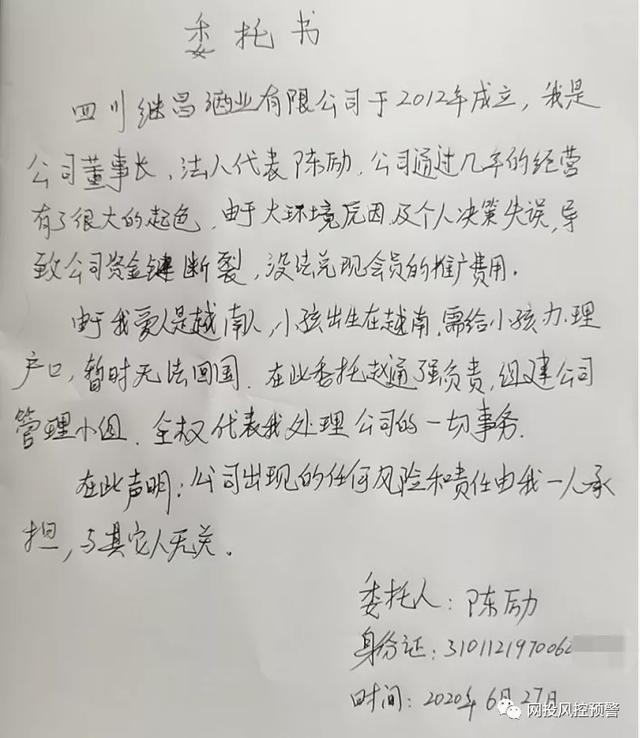 委托书
四川继昌酒业有限公司于2012年成立,我是
公司董事长、法人代表陈励.公司通过几年的经营
有了很大的起色.由于大环境原因及个人决策失误,导
致公司资金链断裂,没法兑现会员的推广费用.
由于我爱人是越南人,小孩出生在越南.需给小孩办理
户口,暂时无法回国.在此委托赵通强负责,组建公司
管理小组.全权代表我处理公司的一切事务.
在此声明:公司出现的任何风险和责任由我一人承
担,与其它人无关.
委托人:陈励
身份证:3101121970062
时间:2020年6月27日
网投风控预警